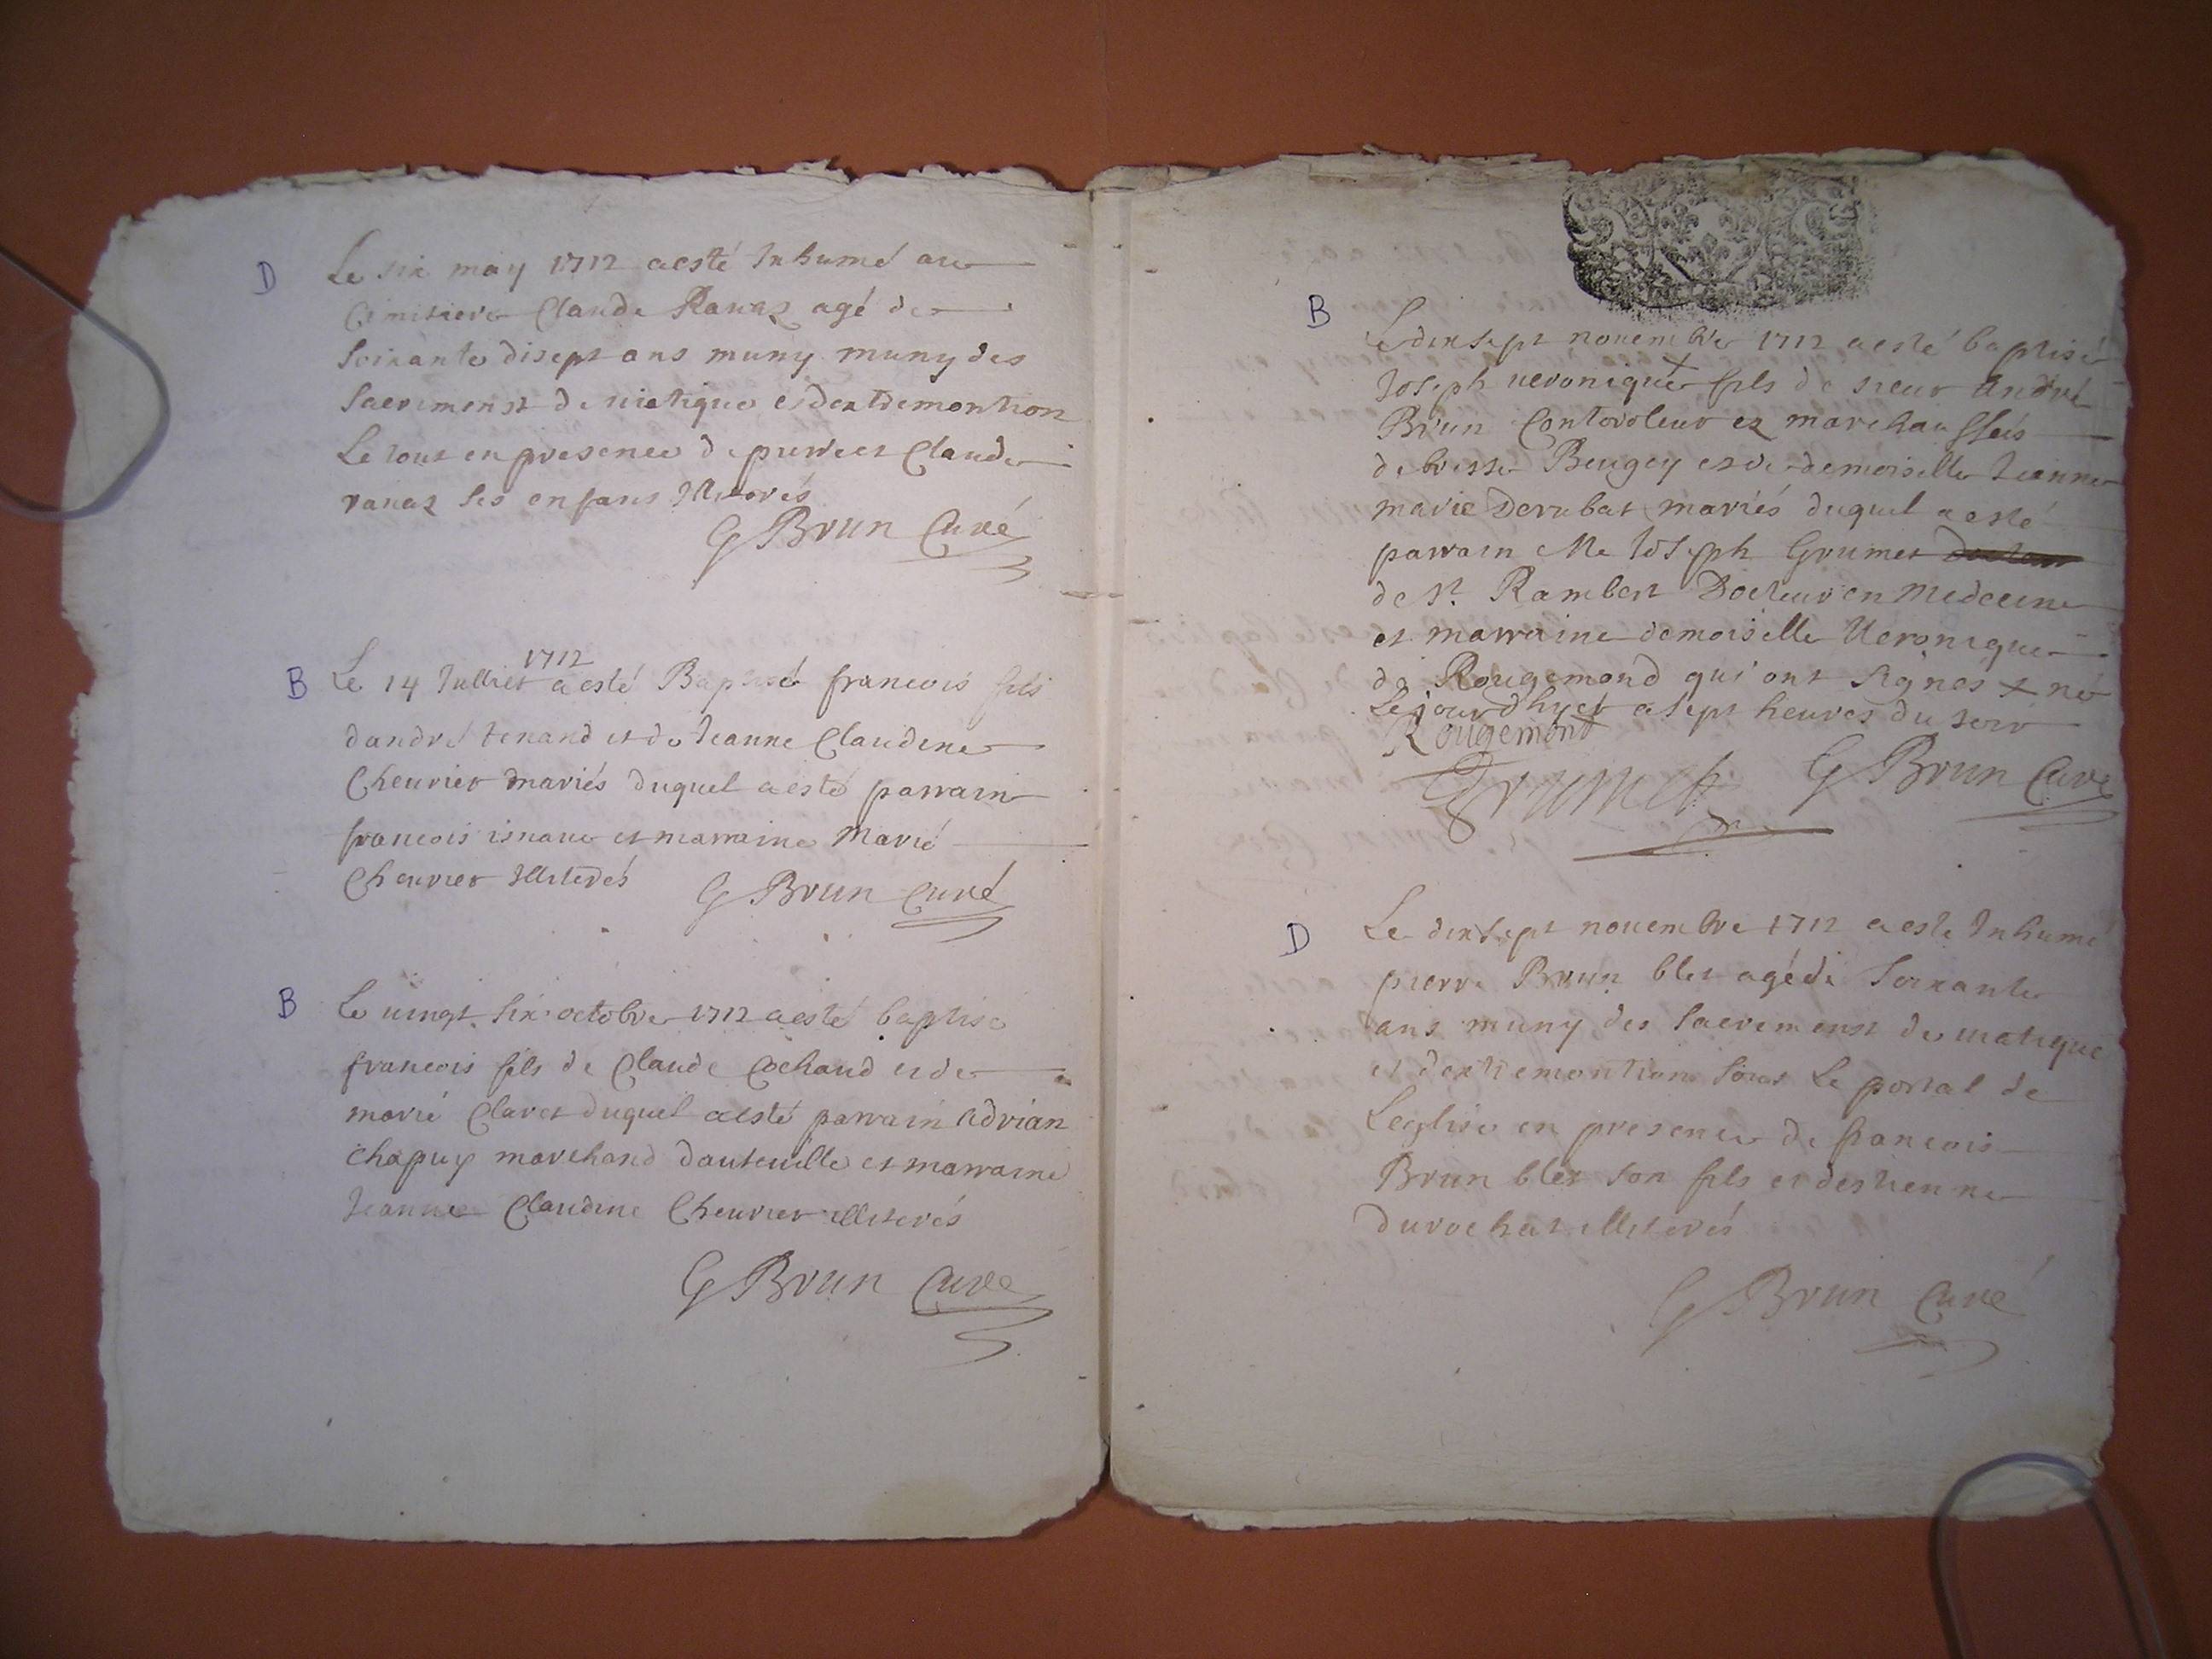 D
Le six may 1712 a esté Inhumé au
Cimitiere Claude Ravaz agé de
Soixante disept ans muny muny des
Sacremenst de viatique et dextremontion
Le tout en presence de pierre et Claude
ravaz ses enfans Illiterés
G Brun Curé
B
1712
Le 14 Julliet a esté Baptisé francois fils
dandré tenand et de Jeanne Claudine
Cheurier mariés duquel a esté parrain
francois et marraine Marie
Cheurier Illiterés
G Brun Curé
B
Le uingt six octobre 1712 a esté baptisé
francois fils de Claude Cochand et de
marie Claret duquel a esté parrain Adrian
Chapuy marchand dauteuille et marraine
Jeanne Claudine Cheurier illiterés
G Brun Curé
B
Le dixsept nouembre 1712 a esté baptisé
Joseph ueronique + fils de sieur André
Brun Contoroleur ez marchaussées
de bresse Beugey et de demoiselle Jeanne
marie Derubat mariés duquel a esté
parrain Me Joseph Grumet
de St. Rambert Docteur en Medecine
et marraine demoiselle Ueronique
de Rougemond qui ont signés + né
Le jour dhyer a sept heures du soir
Rougemont
Grumet G Brun Curé
D
Le dixsept nouembre 1712 a esté Inhumé
pierre Brun blet agé de soixante
ans muny des Sacremenst de uiatique
et dextremontion sous Le portal de
Leglise en presence de francois
Brun blet son fils et destienne
durochat illiterés
G Brun Curé